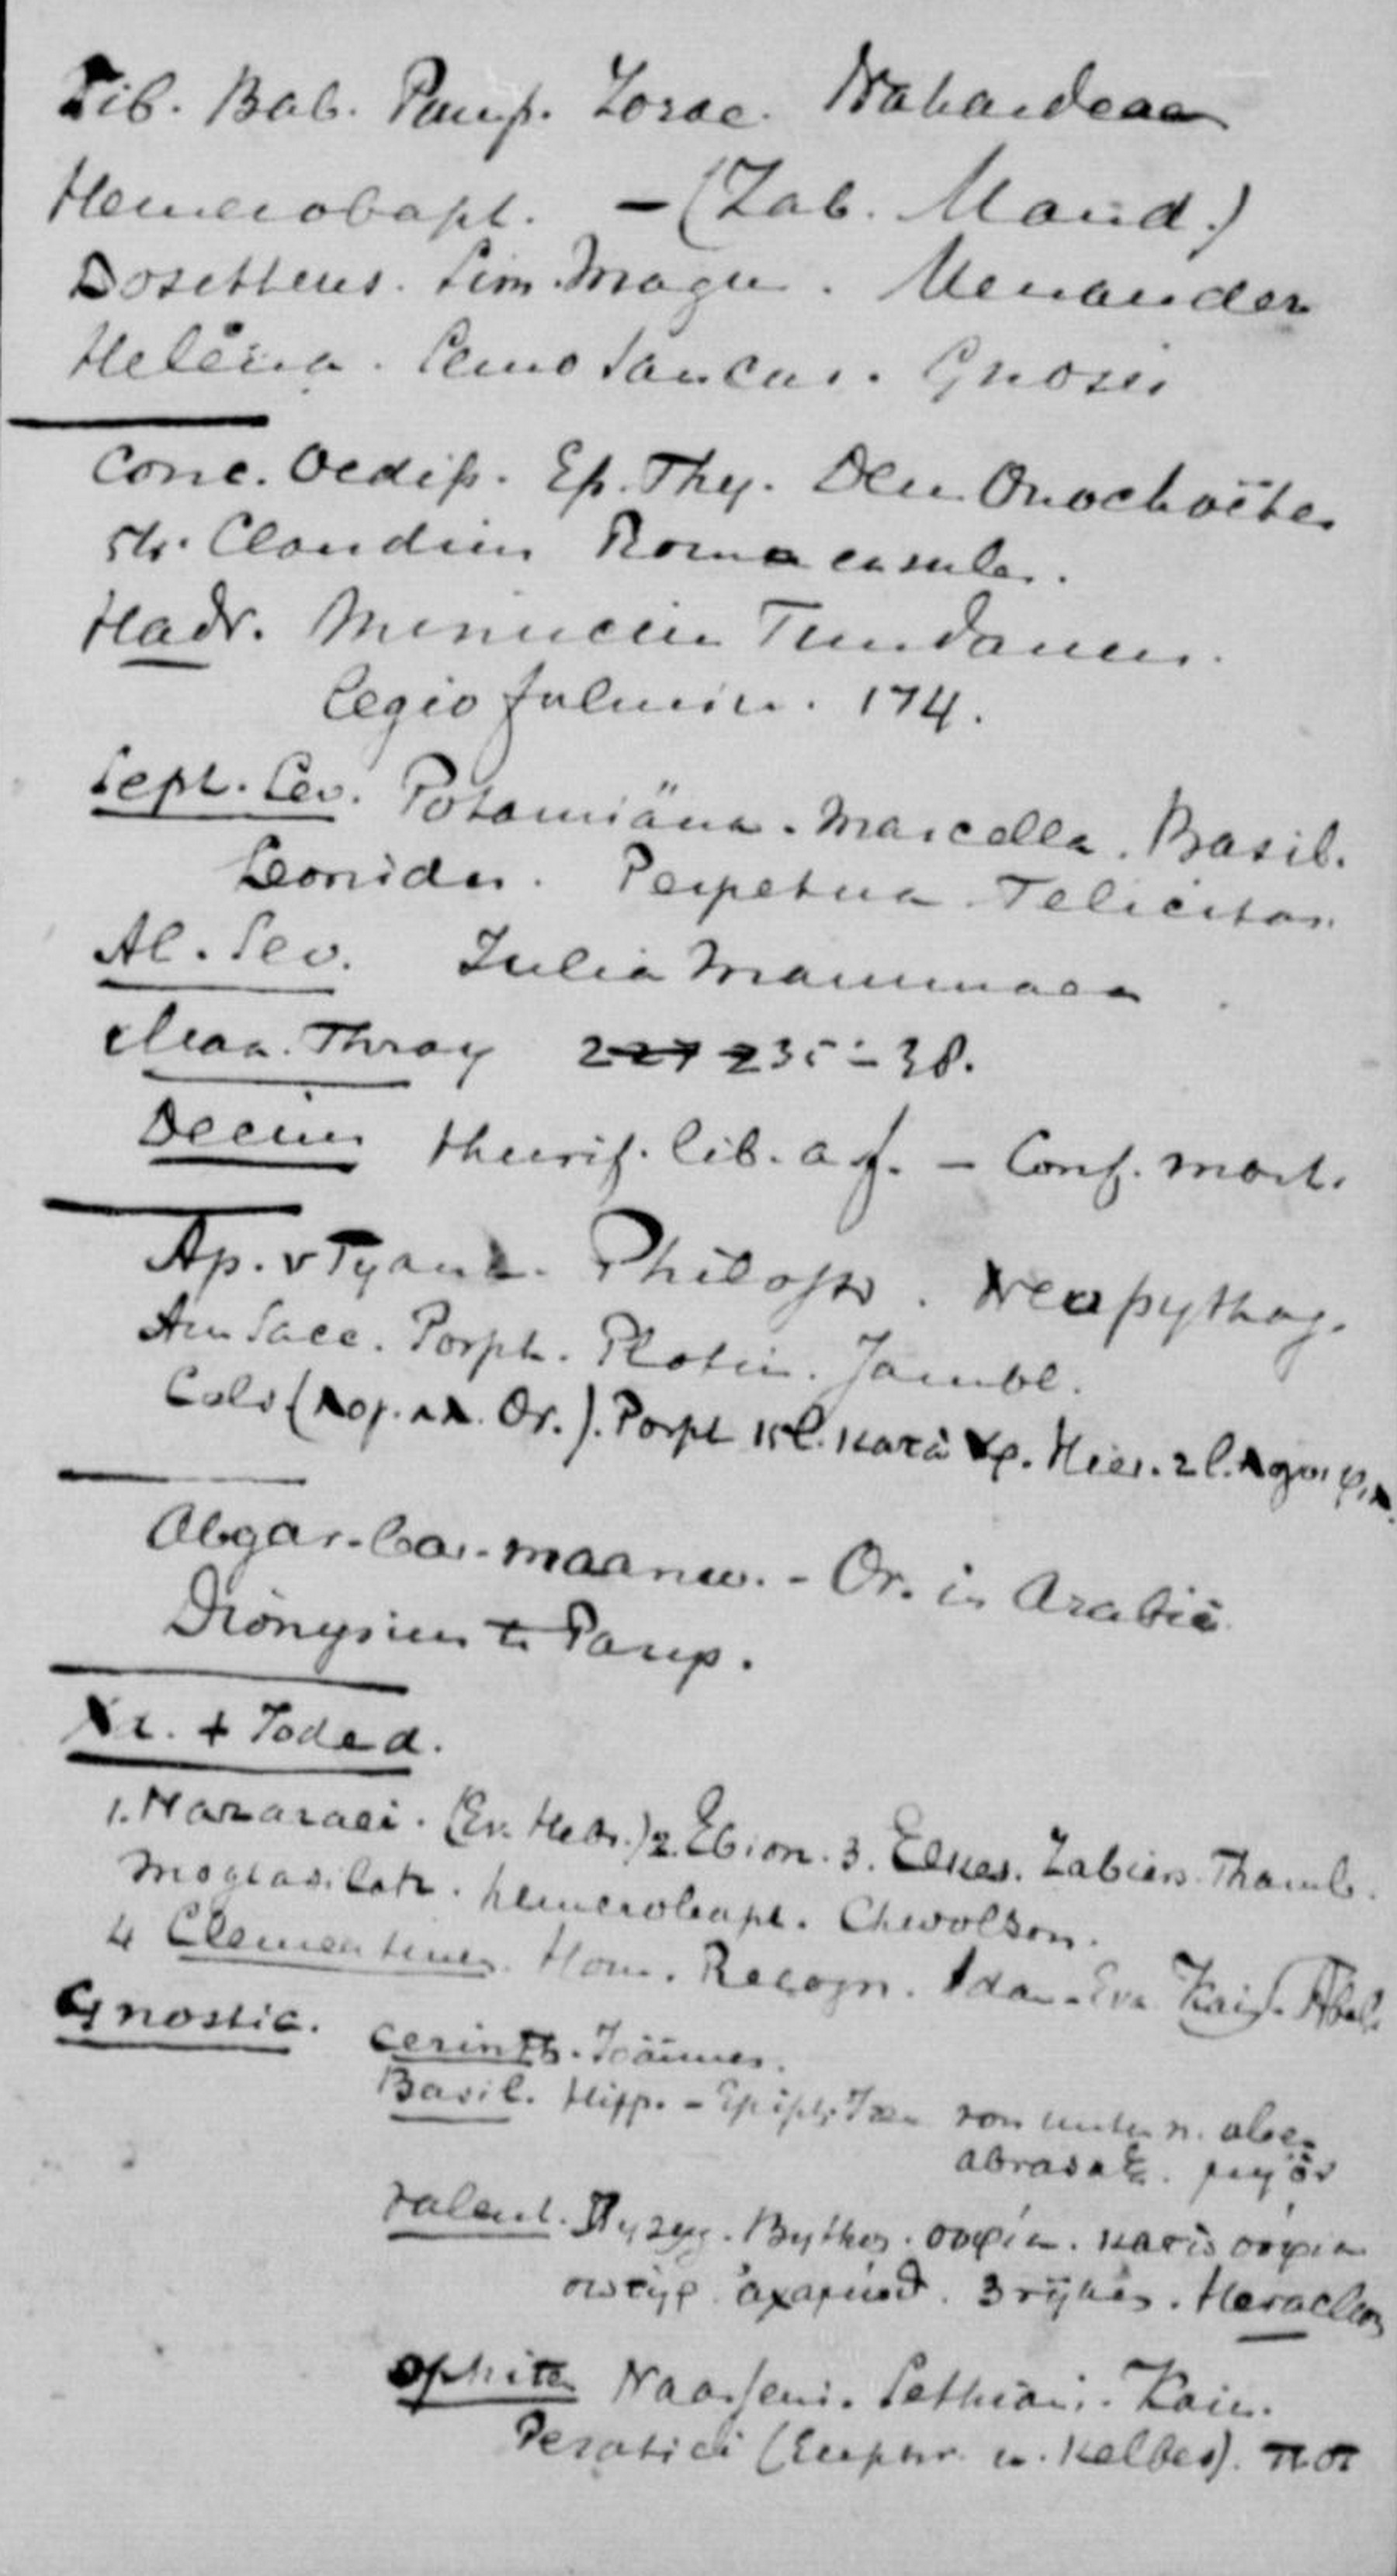 Tib. Bab. Pamp. Zorae. Nahardeaa
Hemerobapt. – (Zab. Mand.)
Dositheus. Sim. Magu. Menander
Helena. Semo Sancus. Gnosis
Conc. Oedip. Ep. Thy. Deus Onochoëtes
Claudius Roma
Hadr. Minucius Fundanus.
Legio fulmin. 174.
Sept. Sev. Potamiäna. Marcella. Basil.
Leonides. Perpetua Felicitas.
Al. Sev. Julia Mammaea
Max. Thrax 227 235–38.
Decius thurif. lib. a f. – Conf. mart.
Ap. v Tyana. Philostr. Neopythag.
Am Sacc. Porph. Plotin. Jambl.
Cels (λογ. αλ. Or.). Porph 15 l. κατὰ χρ. Hier. 2 l. λογοι φιλ.
Abgar-bar-maanu. – Or. in Arabië
Dionysius te Parijs.
Xr. + Joded.
1. Nazaraei. (Ev. Hebr.) 2. Ebion. 3. Elkes. Zabiers. Thaub.
Mogtasilah. hemerobapt. Chwolson.
4 Clementinen. Hom. Recogn. Adam-Eva Kain-Abel.
Gnostic. Cerinth. Joännes.
Basil. Hipp. – Epiph. Iren von unten n. oben
abrasax. μη ὄν
Valent. Syzyg. Bythos. σοφία. κατω σοφια
σωτηρ. ἀχαμωθ. 3 rijken. Heracleon
Ophiten Naasseni. Sethiani. Kain.
Peratici (Euphr. u. Kelbes).